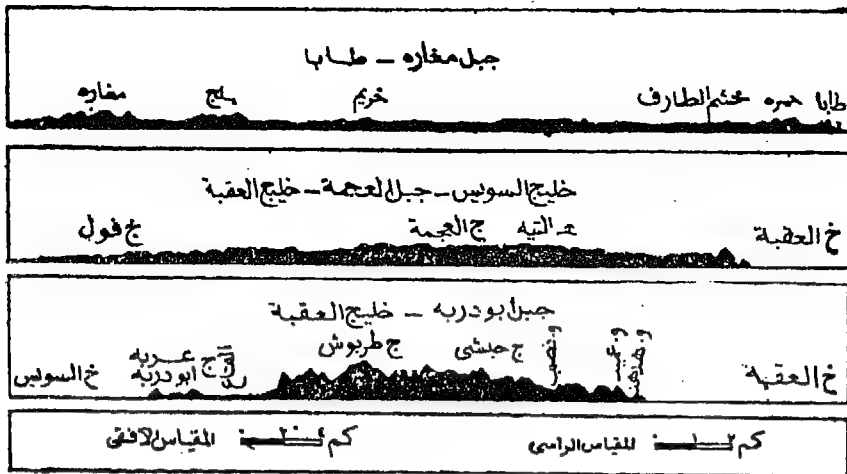 جبل مغاره - طابا
طابا حمره مخيم الطارف خريم يلج مغاره
خليج السويس - جبل العجمة - خليج العقبة
خ العقبة ه التيه ج العجمة خ فول
جبل أبو دربه - خليج العقبة
خ العقبة و نصب ج حبشى ج طربوش ج عربه أبو دربه خ السويس
كم ٢ ١ ٠ المقياس الراسى كم ٤ ٢ ٠ المقياس الافقى